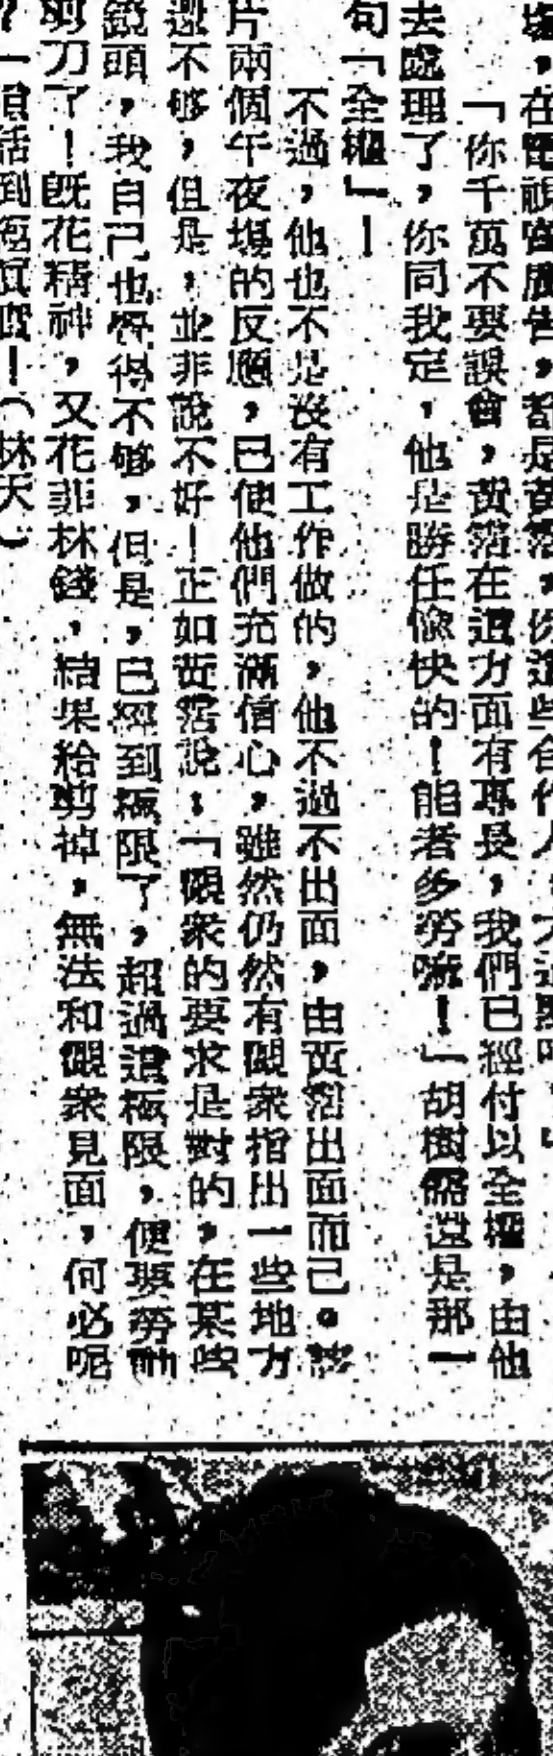 在電視賣廣告，都是黃霑，
「你千萬不要誤會，黃霑在這方面有專長，我們已經付以全權，由他
去處理了，你同我定，他是勝任愉快的！能者多勞嘛！」胡樹儒還是那一
句「全權」！
不過，他也不是沒有工作做的，他不過不出面，由黃霑出面而已。該
片兩個午夜場的反應，已使他們充滿信心，雖然仍然有觀衆指出一些地方
還不够，但是，並非說不好！正如黃霑說：「觀衆的要求是對的，在某些
鏡頭，我自己也覺得不够，但是，已經到極限了，超過這極限，便要勞動
剪刀了！既花精神，又花菲林錢，結果給剪掉，無法和觀衆見面，何必呢
？」眞話到極！（林天）